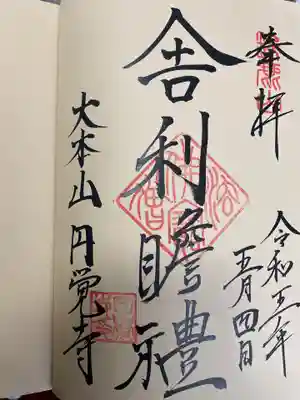 奉拝
令和五年
五月四日
舎利瞻禮
大本山 円覚寺